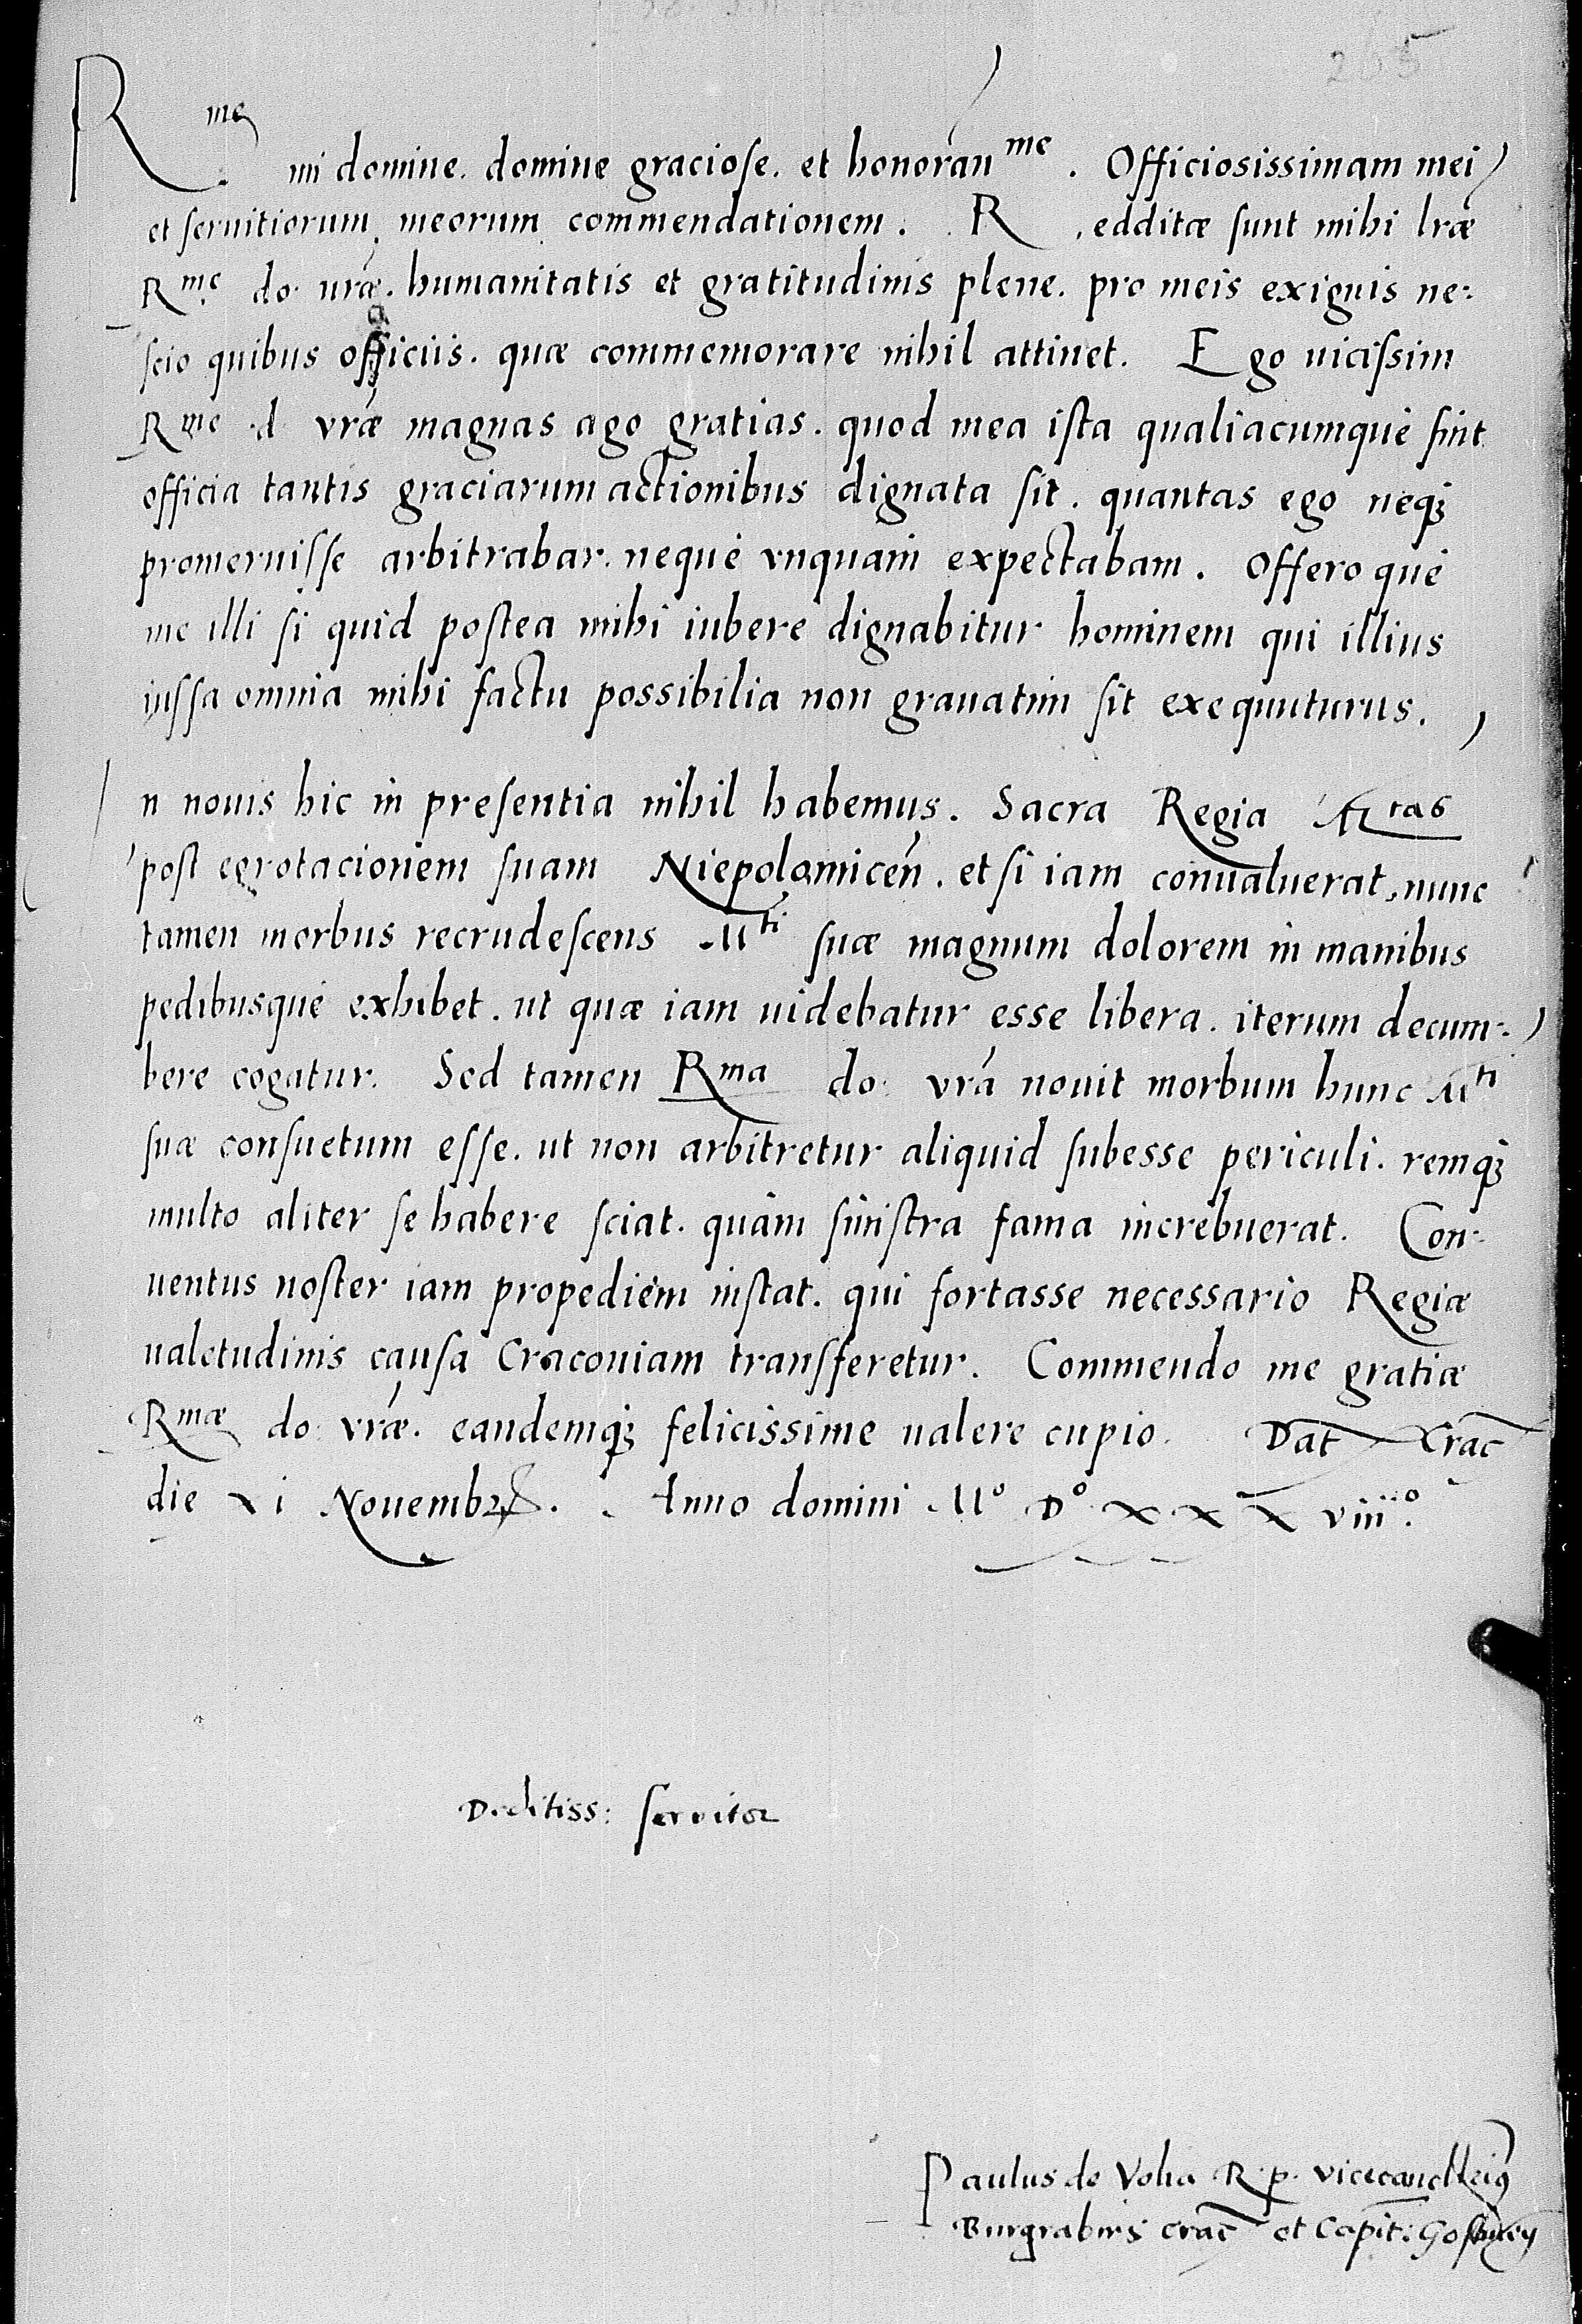 265
R me mi domine. domine graciose. et honoran me. Officiosissimam mei
et seruitiorum meorum commendationem. Redditæ sunt mihi lræ
R me do. uræ. humanitatis et gratitudinis plene. pro meis exiguis ne:
scio quibus officiis. quæ commemorare nihil attinet. Ego uicissim
R me .d vræ magnas ago gratias. quod mea ista qualiacumque sint
officia tantis graciarum actionibus dignata sit. quantas ego neq3
promeruisse arbitrabar. neque vnquam expectabam. Offero que
me illi si quid postea mihi iubere dignabitur hominem qui illius
iussa omnia mihi factu possibilia non grauatim sit exequuturus.
In nouis hic in presentia nihil habemus. Sacra Regia M tas
post egrotacionem suam Niepolomicen. et si iam conualuerat, nunc
tamen morbus recrudescens M ti suæ magnum dolorem in manibus
pedibusque exhibet. ut quæ iam uidebatur esse libera. iterum decum:
bere cogatur. Sed tamen R ma do: vra nouit morbum hunc M ti
suæ consuetum esse. ut non arbitretur aliquid subesse periculi. remq3
multo aliter se habere sciat. quàm sinistra fama increbuerat. Con:
uentus noster iam propediem instat. qui fortasse necessario Regiæ
ualetudinis causa Craconiam transferetur. Commendo me gratiæ
R mæ do: vræ. eandemq3 felicissime ualere cupio. Dat Crac
die xi Nouembr. Anno domini M° D° xxx viii°.
Deditiss: seruitor
Paulus de Volia R. p. vicecancellarius
Burgrabius Crac et Capit: